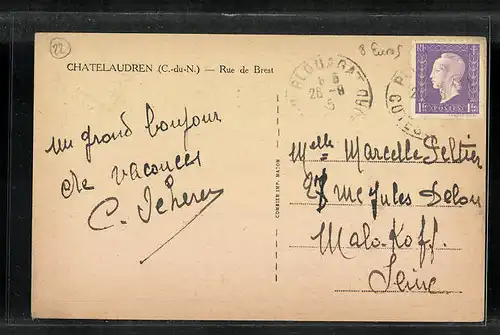 22
CHATELAUDREN (C.-du-N.) — Rue de Brest
8 Euros
PLOUAGAT
26 -8
COTES
RF
POSTES
un grand bonjour
de vacances
C.
CORBIER IMP. MACON
Melle Marcelle Peltier
27 rue Jules Delon
Malakoff.
Seine